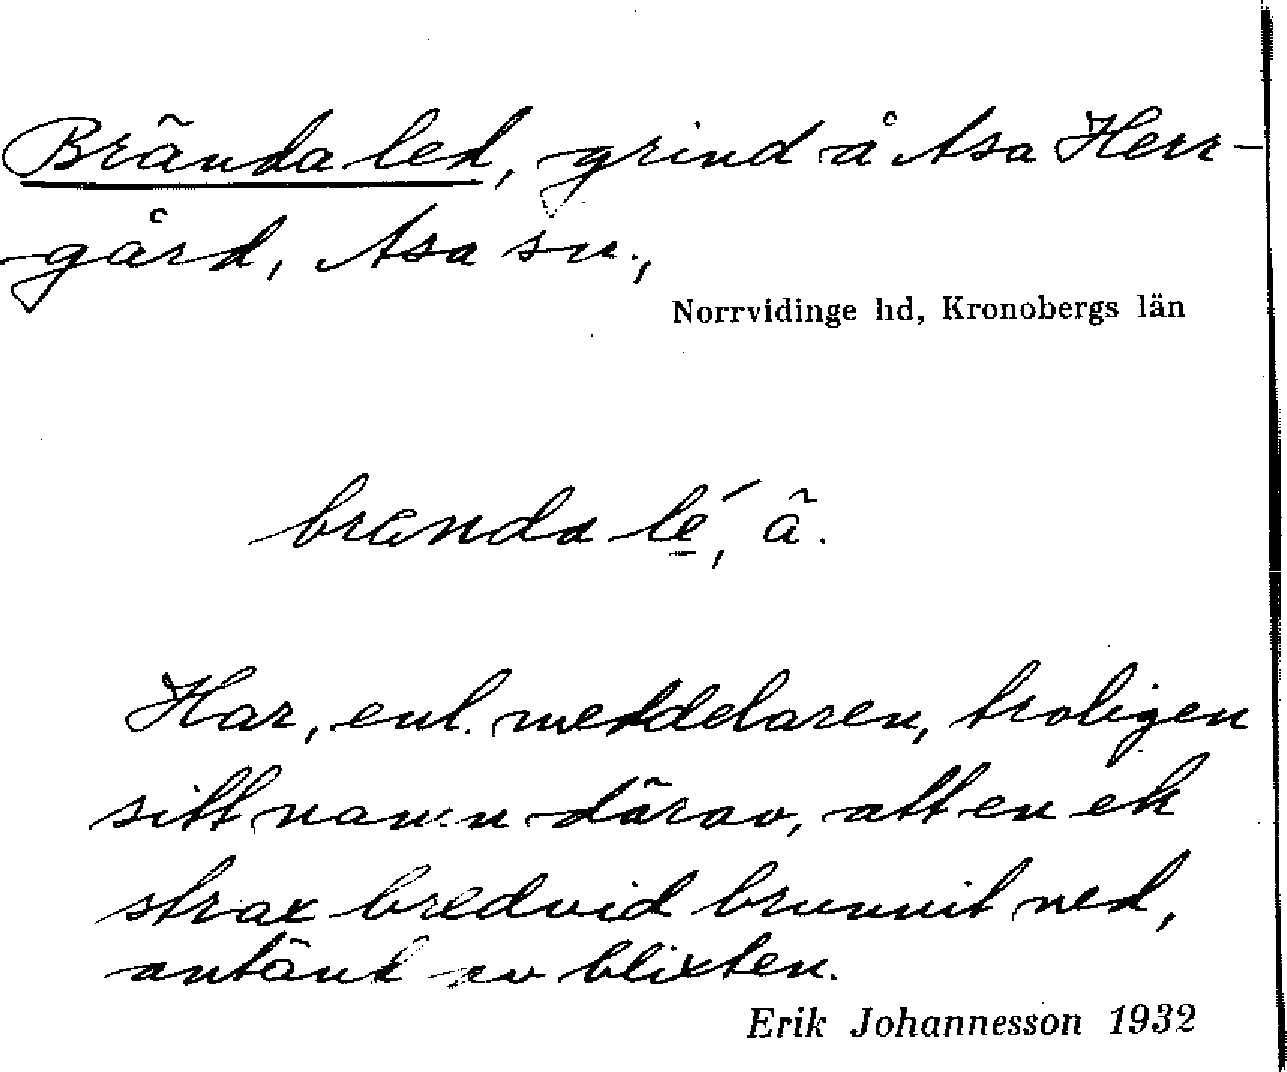 Brända led, grind å Asa Herr-
gård, Asa sn.,
Norrvidinge hd, Kronobergs län
branda lé, ã.
Har, enl. meddelaren, troligen
sitt namn därav, att en ek
strax bredvid brunnit ned,
antänt av blixten.
Erik Johannesson 1932